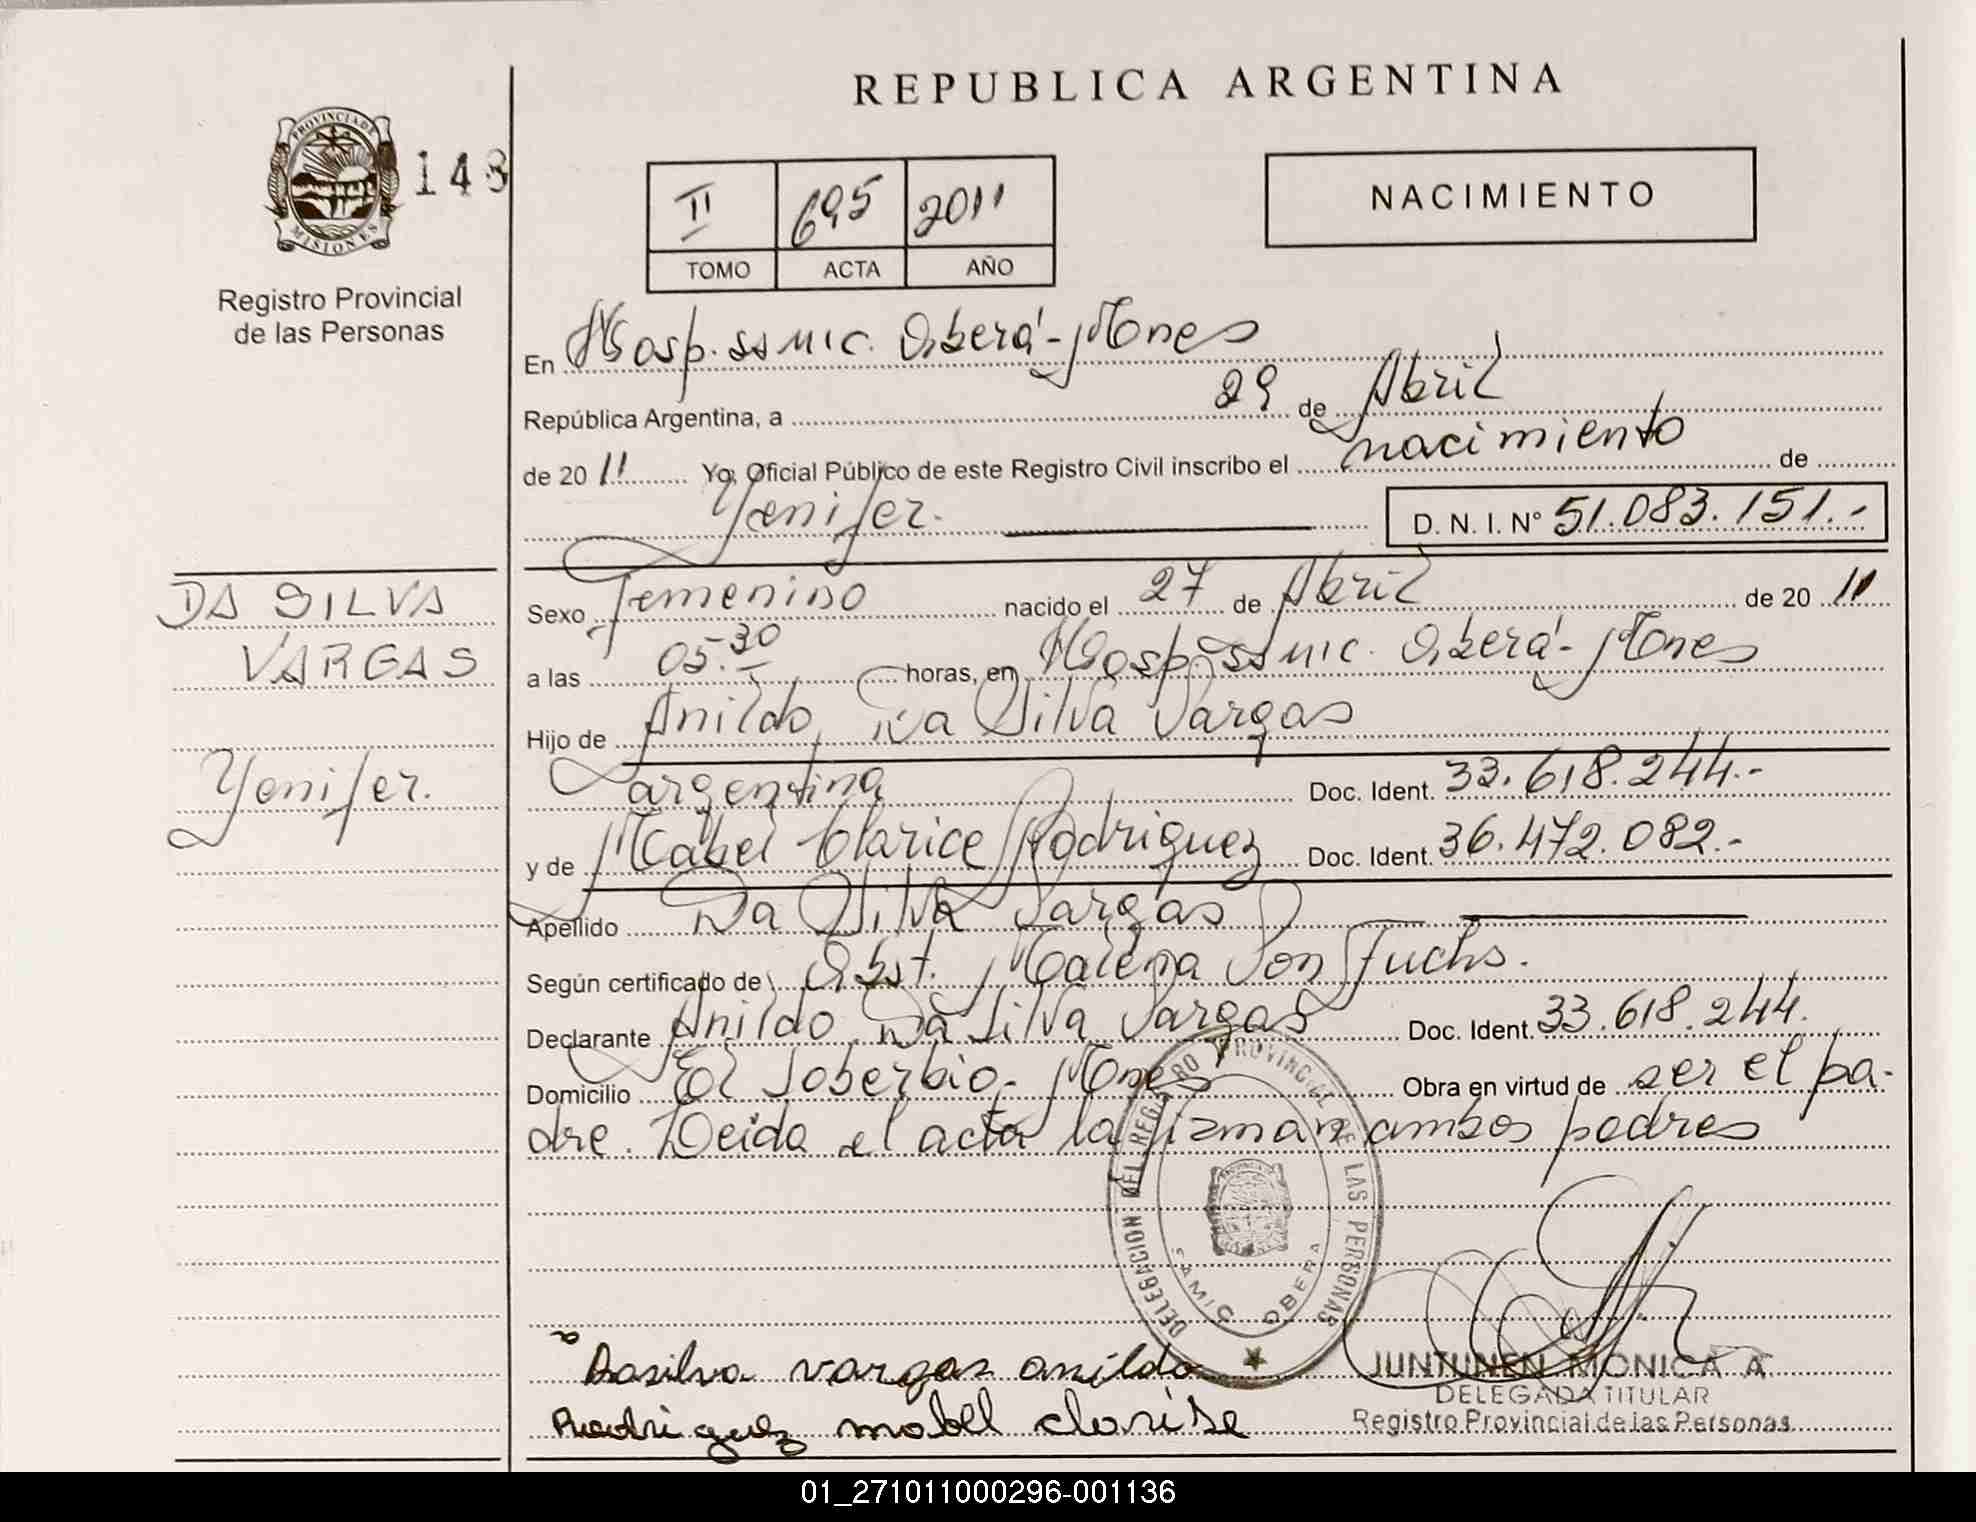 REPUBLICA ARGENTINA
PROVINCIA DE
MISIONES
148
Registro Provincial
de las Personas
II 695 2011
TOMO ACTA AÑO
NACIMIENTO
En Hosp. ss MIC. Oberá-Mones
República Argentina, a 29 de Abril
de 20 11 Yo, Oficial Público de este Registro Civil inscribo el nacimiento de
Yenifer. D. N. I. N° 51.083.151.-
DA SILVA
VARGAS
Yenifer.
Sexo Femenino nacido el 27 de Abril de 20 11
a las 05:30 horas, en Hosp. ss MIC. Oberá-Mones
Hijo de Anildo Da Silva Vargas
argentina Doc. Ident. 33.618.244.-
y de Mabel Clarice Rodriguez Doc. Ident. 36.472.082.-
Apellido Da Silva Vargas
Según certificado de Obst. Malena Von Fuchs.
Declarante Anildo Da Silva Vargas Doc. Ident. 33.618.244.
Domicilio El Soberbio-Mones Obra en virtud de ser el pa-
dre. Leida el acta la firman ambos padres
DELEGACION DEL REGISTRO PROVINCIAL DE LAS PERSONAS
SAMIC OBERA
Dasilva vargas anildo
Rodriguez mabel clarise
JUNTUNEN MONICA A
DELEGADA TITULAR
Registro Provincial de las Personas
01_271011000296-001136